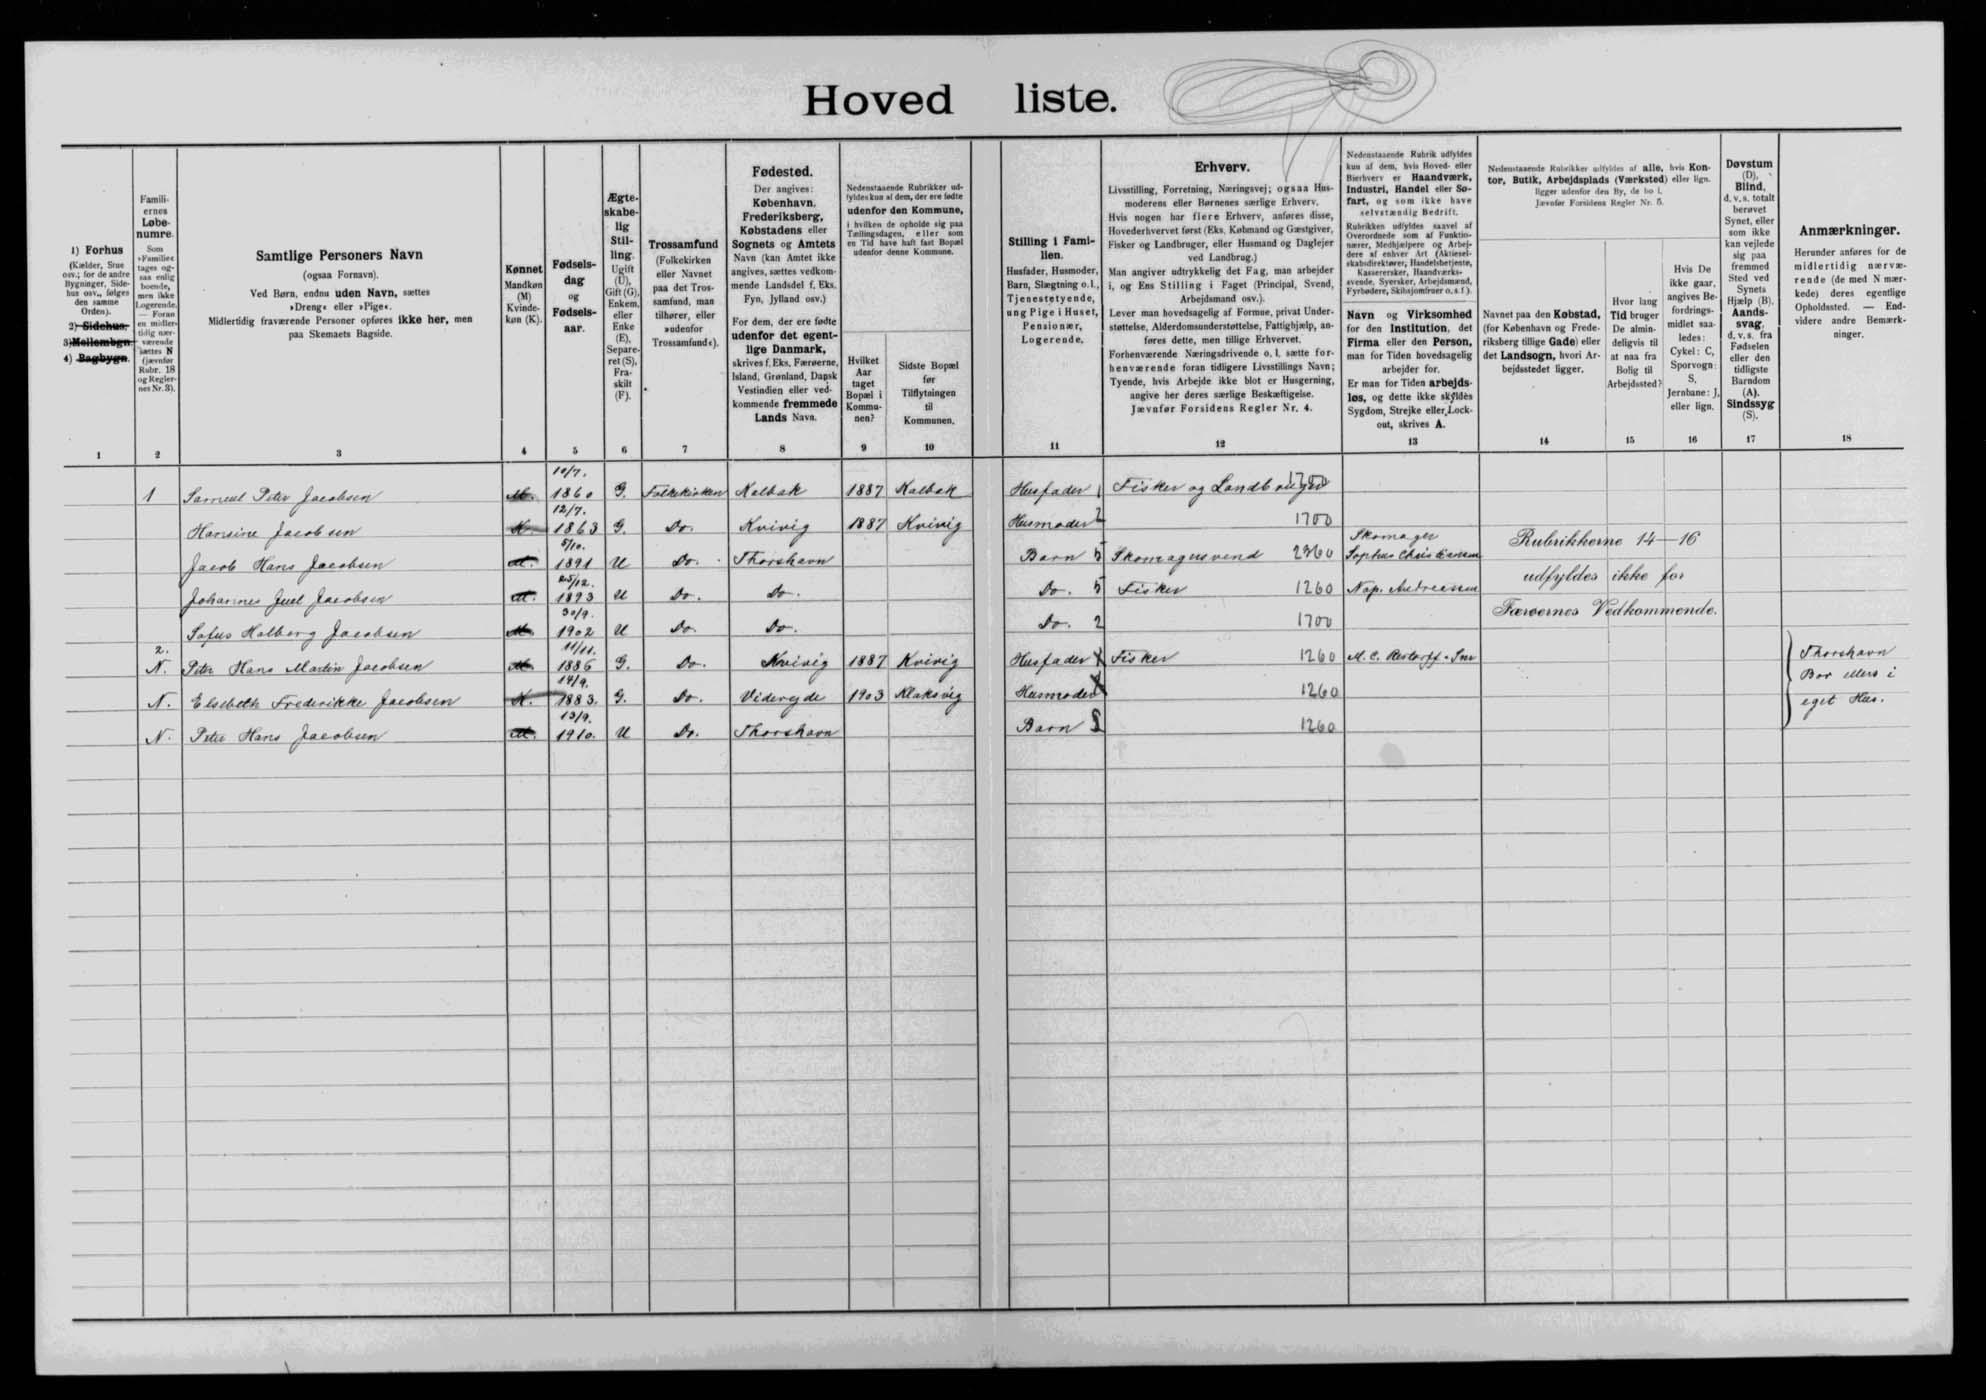 Hoved liste.
1) Forhus
(Kælder, Stue
osv.; for de andre
Bygninger, Side-
hus osv., følges
den samme
Orden).
2) Sidehus.
3) Mellembgn.
4) Bagbygn.
Famili-
ernes
Løbe-
numre.
Som
»Familie«
tages og-
saa enlig
boende,
men ikke
Logerende.
— Foran
en midler-
tidig nær-
værende
sættes N
(jævnfør
Rubr. 18
og Regler-
nes Nr. 3).
Samtlige Personers Navn
(ogsaa Fornavn).
Ved Børn, endnu uden Navn, sættes
»Dreng« eller »Pige«.
Midlertidig fraværende Personer opføres ikke her, men
paa Skemaets Bagside.
Kønnet
Mandkøn
(M)
Kvinde-
køn (K).
Fødsels-
dag
og
Fødsels-
aar.
Ægte-
skabe-
lig
Stil-
ling.
Ugift
(U),
Gift (G),
Enkem.
eller
Enke
(E),
Separe-
ret (S),
Fra-
skilt
(F).
Trossamfund
(Folkekirken
eller Navnet
paa det Tros-
samfund, man
tilhører, eller
»udenfor
Trossamfund«).
Fødested.
Der angives:
København,
Frederiksberg,
Købstadens eller
Sognets og Amtets
Navn (kan Amtet ikke
angives, sættes vedkom-
mende Landsdel f. Eks.
Fyn, Jylland osv.)
For dem, der ere fødte
udenfor det egent-
lige Danmark,
skrives f. Eks. Færøerne,
Island, Grønland, Dansk
Vestindien eller ved-
kommende fremmede
Lands Navn.
Nedenstaaende Rubrikker ud-
fyldes kun af dem, der ere fødte
udenfor den Kommune,
i hvilken de opholde sig paa
Tællingsdagen, eller som
en Tid have haft fast Bopæl
udenfor denne Kommune.
Hvilket
Aar
taget
Bopæl i
Kommu-
nen?
Sidste Bopæl
før
Tilflytningen
til
Kommunen.
Stilling i Fami-
lien.
Husfader, Husmoder,
Barn, Slægtning o. l.,
Tjenestetyende,
ung Pige i Huset,
Pensionær,
Logerende.
Erhverv.
Livsstilling, Forretning, Næringsvej; ogsaa Hus-
moderens eller Børnenes særlige Erhverv.
Hvis nogen har flere Erhverv, anføres disse,
Hovederhvervet først (Eks. Købmand og Gæstgiver,
Fisker og Landbruger, eller Husmand og Daglejer
ved Landbrug.)
Man angiver udtrykkelig det Fag, man arbejder
i, og Ens Stilling i Faget (Principal, Svend,
Arbejdsmand osv.).
Lever man hovedsagelig af Formue, privat Under-
støttelse, Alderdomsunderstøttelse, Fattighjælp, an-
føres dette, men tillige Erhvervet.
Forhenværende Næringsdrivende o. l. sætte for-
henværende foran tidligere Livsstillings Navn;
Tyende, hvis Arbejde ikke blot er Husgerning,
angive her deres særlige Beskæftigelse.
Jævnfør Forsidens Regler Nr. 4.
Nedenstaaende Rubrik udfyldes
kun af dem, hvis Hoved- eller
Bierhverv er Haandværk,
Industri, Handel eller Sø-
fart, og som ikke have
selvstændig Bedrift.
Rubrikken udfyldes saavel af
Overordnede som af Funktio-
nærer, Medhjælpere og Arbej-
dere af enhver Art (Aktiesel-
skabsdirektører, Handelsbetjente,
Kasserersker, Haandværks-
svende, Syersker, Arbejdsmænd,
Fyrbødere, Skibsjomfruer o. s. f.).
Navn og Virksomhed
for den Institution, det
Firma eller den Person,
man for Tiden hovedsagelig
arbejder for.
Er man for Tiden arbejds-
løs, og dette ikke skyldes
Sygdom, Strejke eller Lock-
out, skrives A.
Nedenstaaende Rubrikker udfyldes af alle, hvis Kon-
tor, Butik, Arbejdsplads (Værksted) eller lign.
ligger udenfor den By, de bo i.
Jævnfør Forsidens Regler Nr. 5.
Navnet paa den Købstad,
(for København og Frede-
riksberg tillige Gade) eller
det Landsogn, hvori Ar-
bejdsstedet ligger.
Hvor lang
Tid bruger
De almin-
deligvis til
at naa fra
Bolig til
Arbejdssted?
Hvis De
ikke gaar,
angives Be-
fordrings-
midlet saa-
ledes:
Cykel: C,
Sporvogn:
S,
Jernbane: J,
eller lign.
Døvstum
(D),
Blind,
d. v. s. totalt
berøvet
Synet, eller
som ikke
kan vejlede
sig paa
fremmed
Sted ved
Synets
Hjælp (B).
Aands-
svag,
d. v. s. fra
Fødselen
eller den
tidligste
Barndom
(A).
Sindssyg
(S).
Anmærkninger.
Herunder anføres for de
midlertidig nærvæ-
rende (de med N mær-
kede) deres egentlige
Opholdssted. — End-
videre andre Bemærk-
ninger.
1 2 3 4 5 6 7 8 9 10 11 12 13 14 15 16 17 18
1 Samuel Peter Jacobsen M. 10/7. 1860 G. Folkekirken Kalbak 1887 Kalbak Husfader 1 Fisker og Landbruger 1700
Hansine Jacobsen K. 12/7. 1863 G. Do. Kvivig 1887 Kvivig Husmoder 2 1700
Jacob Hans Jacobsen M. 5/10. 1891 U Do. Thorshavn Barn 5 Skomagersvend 2960 Skomager Sophus Christiansen
Rubrikkerne 14—16
Johannes Juel Jacobsen M. 25/12. 1893 U Do. Do. Do. 5 Fisker 1260 Nap. Andreassen
udfyldes ikke for
Sofus Holberg Jacobsen M. 30/9. 1902 U Do. Do. Do. 2 1700
Færøernes Vedkommende.
2. N. Peter Hans Martin Jacobsen M. 11/11. 1886 G. Do. Kvivig 1887 Kvivig Husfader Fisker 1260 M. C. Restorff & Snr Thorshavn
N. Elsebeth Frederikke Jacobsen K. 14/9. 1883. G. Do. Videreyde 1903 Klaksvig Husmoder 1260 Bor ellers i
eget Hus.
N. Peter Hans Jacobsen M. 13/9. 1910. U Do. Thorshavn Barn 1260